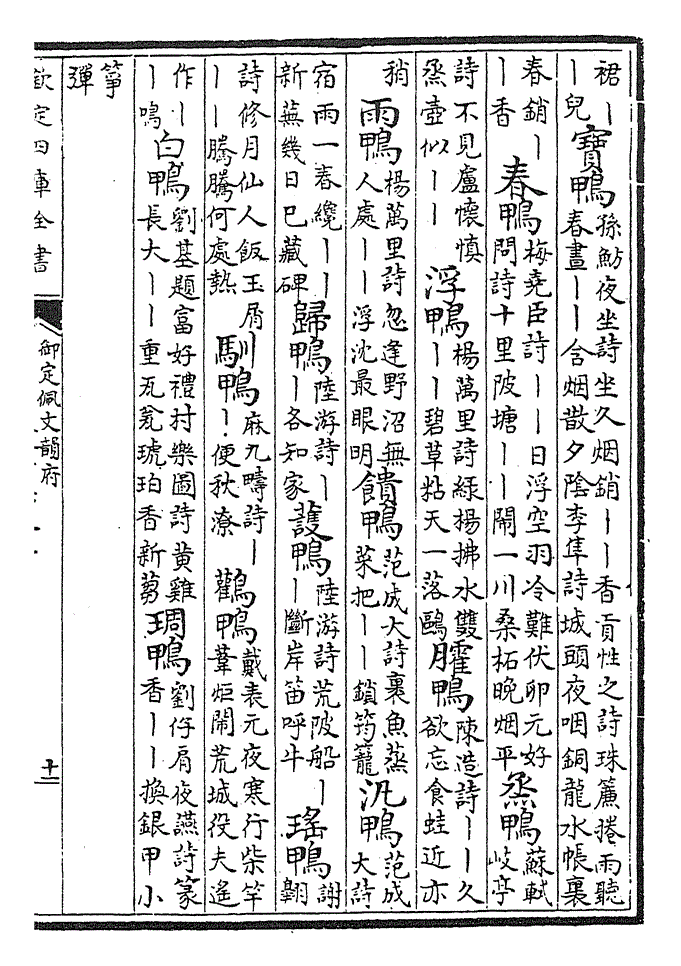 裙丨丨兒寳鴨孫魴夜坐詩坐久烟銷丨丨香貢性之詩珠簾捲雨聽春晝丨丨含烟散夕陰李隼詩城頭夜咽銅龍水帳裏
春銷丨丨香春鴨梅堯臣詩丨丨日浮空羽冷難伏卵元好問詩十里陂塘丨丨鬧一川桑柘晚烟平烝鴨蘇軾岐亭
詩不見盧懷慎烝壺似丨丨浮鴨楊萬里詩綠楊拂水雙丨丨碧草粘天一落鷗臛鴨陳造詩丨丨久欲忘食蛙近亦
稍雨鴨楊萬里詩忽逢野沼無人處丨丨浮沈最眼明饋鴨范成大詩裏魚蒸菜把丨丨鎖筠籠汎鴨范成大詩
宿雨一春纔丨丨新蕪幾日已藏碑歸鴨陸游詩丨丨各知家護鴨陸游詩荒陂船丨丨斷岸笛呼牛瑤鴨謝翺
詩修月仙人飯玉屑丨丨騰騰何處熱馴鴨麻九疇詩丨丨便秋潦鸛鴨戴表元夜寒行柴竿葦炬鬧荒城役夫遙
作丨丨鳴白鴨劉基題富好禮村樂圖詩黄雞長大丨丨重瓦瓮琥珀香新蒭琱鴨劉仔肩夜讌詩篆香丨丨換銀甲小
彈箏
欽定四庫全書
御定佩文韻府
十一